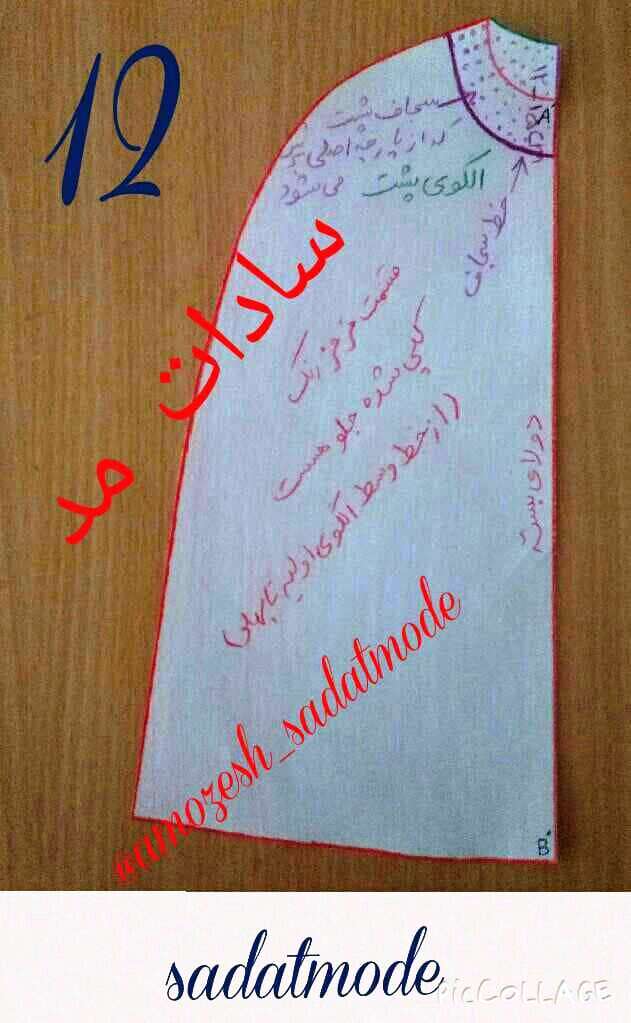 12
سجاف پشت
که از پارچه اصلی
الگوی پشت می شود
خط سجاف
A
سادات مد
قسمت قرمز رنگ
کپی شده جلو هست
را از خط وسط الگوی اولیه تا پهلوی
دولای بسته
amozesh_sadatmode
B'
sadatmode
PICCOLLAGE